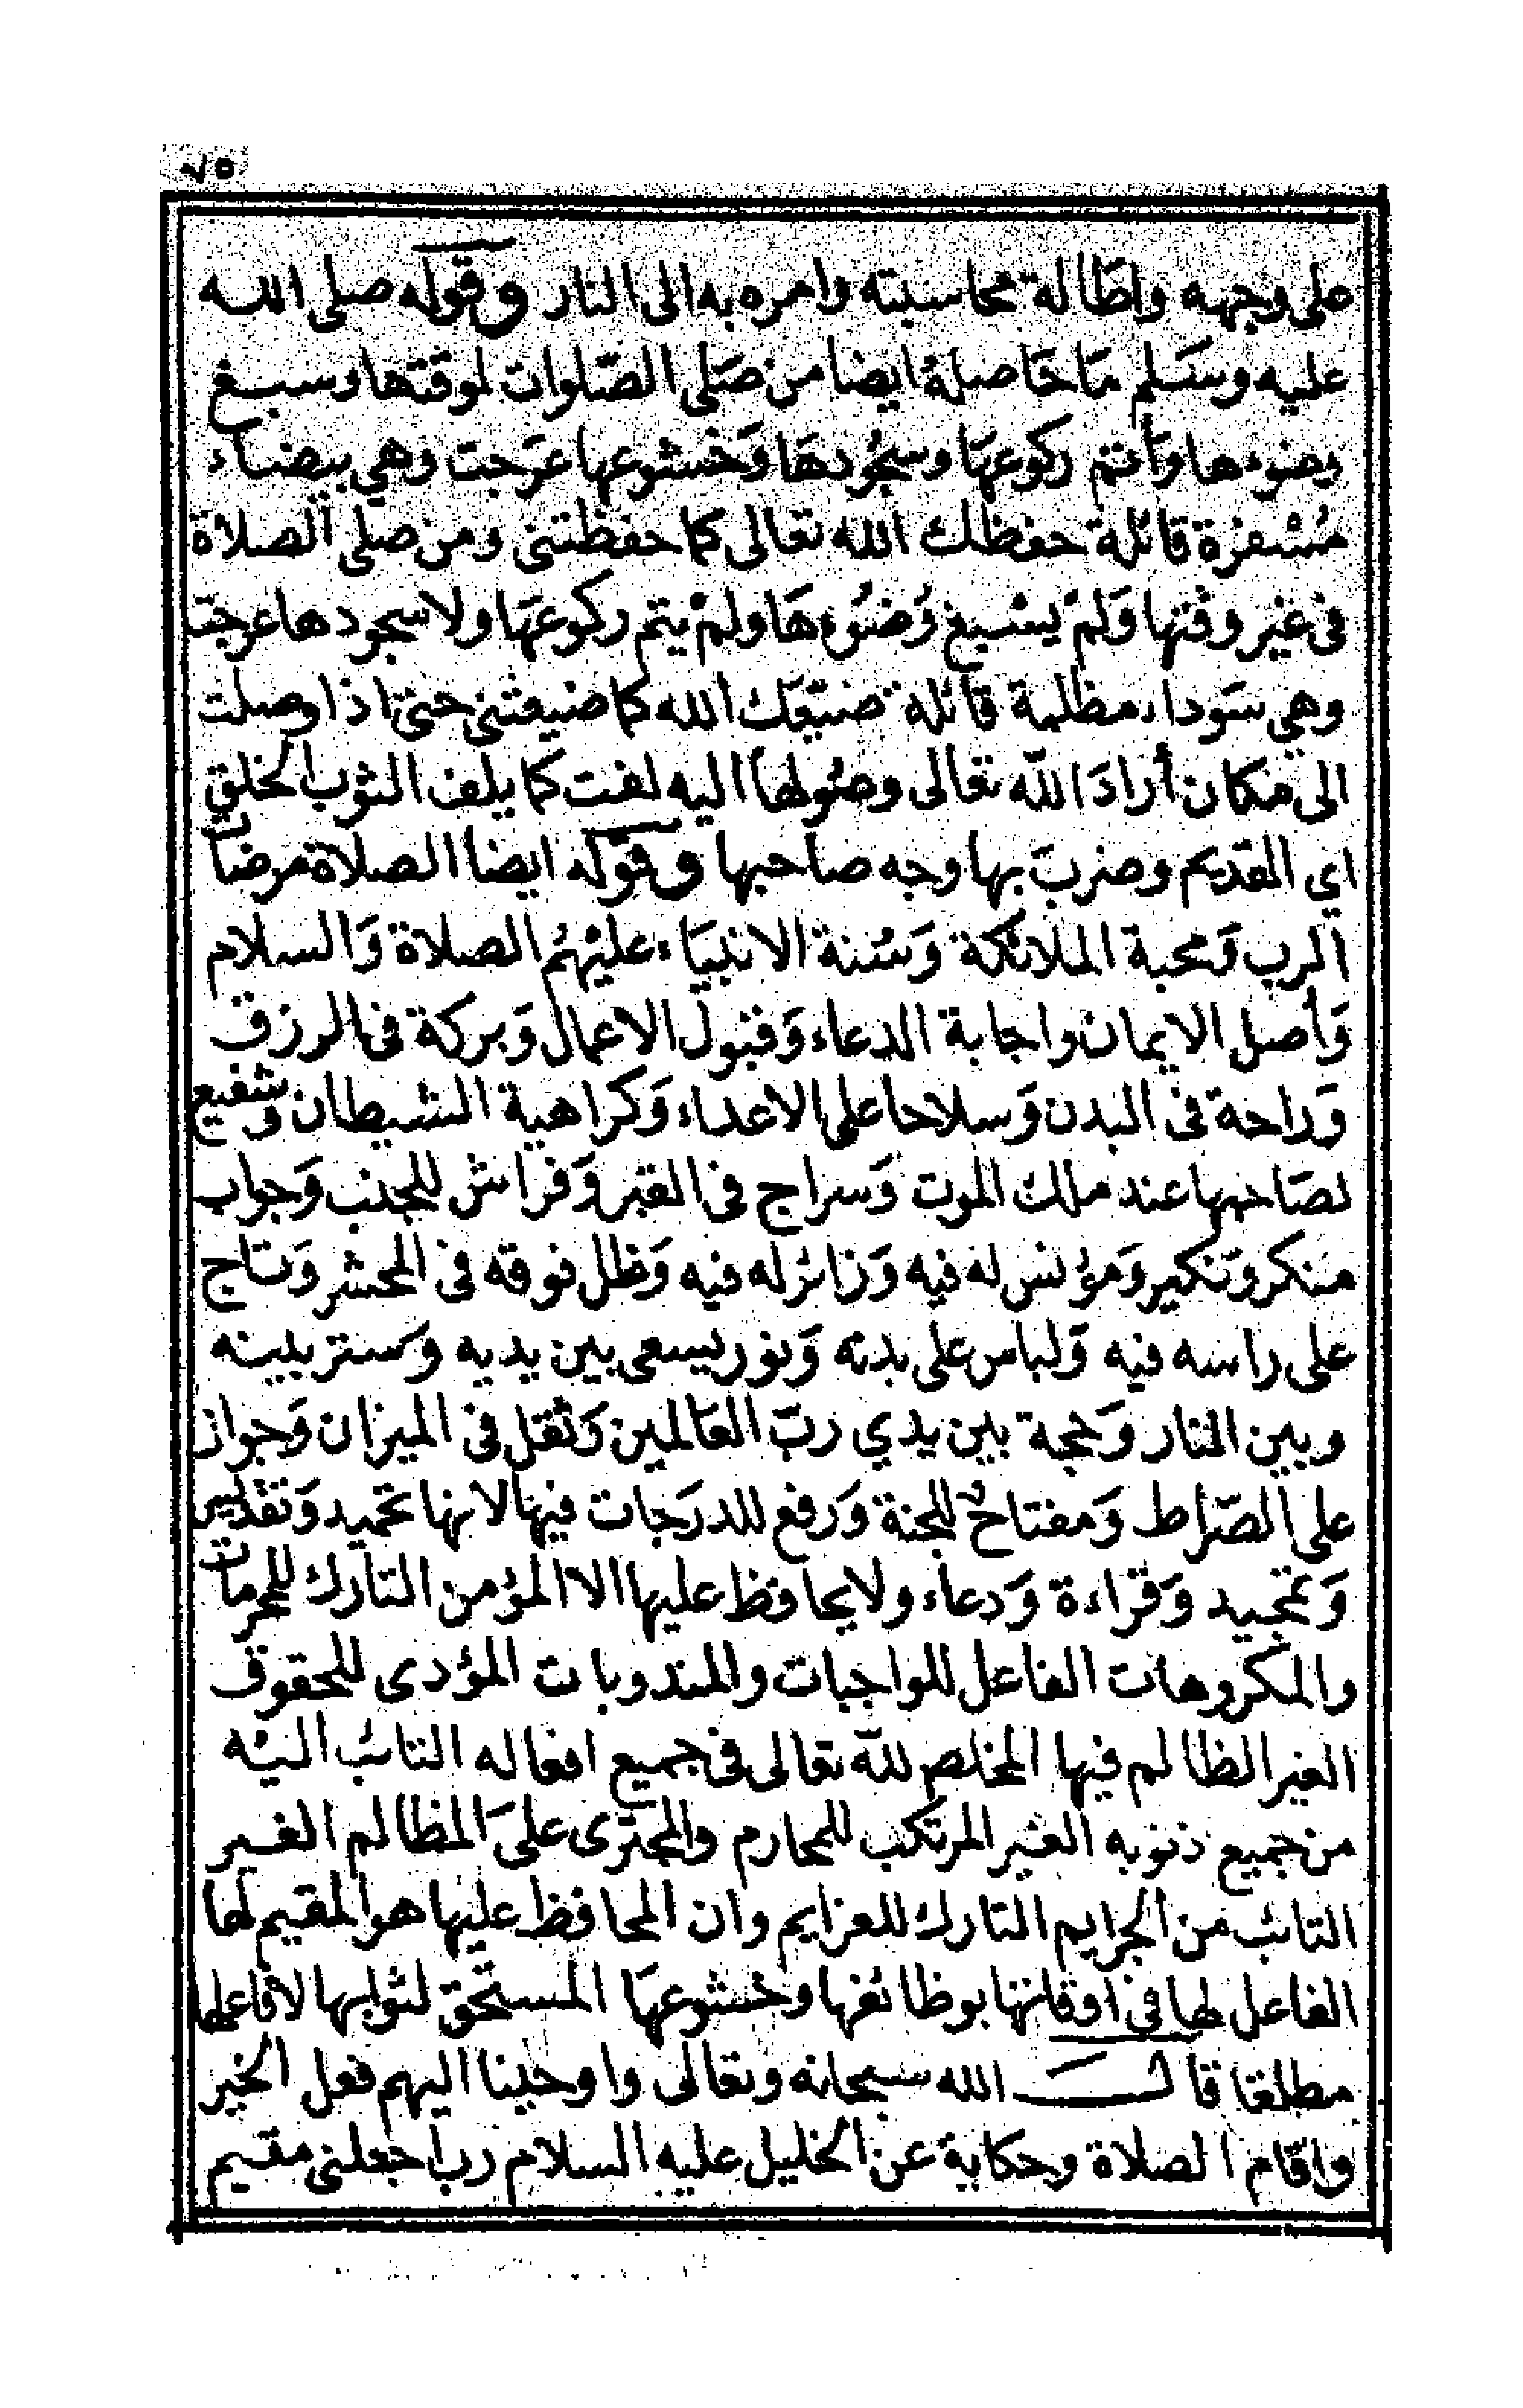 ٧٥
على وجهه واطالة محاسبته وامره به الى النار وقوله صلى الله
عليه وسَلم مَا حَاصله ايضا من صَلى الصّلوات لوقتها وسبغ
وضوءها وَأتم ركوعهَا وسجُودهَا وَخشوعها عرَجت وهي بيضاء
مُسْفرة قائلة حفظك الله تعالى كما حفظتنى ومن صلى الصلاة
فى غير وقتها وَلمْ يسْبغ وُضُوءهَا ولمْ يتم ركوعهَا ولا سجودها عرجت
وهي سَوداء مظلمة قائلة ضيّعك الله كما ضيعتنى حتى اذا وصلت
الى مكان أرادَ الله تعالى وصُولها اليه لفت كما يلف الثوب الخلق
اي القديم وضربَ بها وجه صاحبها وقوله ايضا الصلاة مرضات
الرب وَمحبة الملائكة وَسُنة الانبيَاء عليْهمُ الصلاة وَالسلام
وَأصل الايمان واجابة الدعاء وَقبول الاعمال وَبركة فى الرزق
وَراحة فى البدن وَسلاحا على الاعداء وَكراهية الشيطان وَشفيع
لصَاحبها عند ملك الموت وَسراج فى القبر وَفراش للجنب وَجواب
منكر وَنكير وَمؤنس له فيه وَزائر له فيه وَظل فوقه فى المحشر وَتاج
على راسه فيه وَلباس على بدنه وَنور يسعى بين يديه وَستر بينه
وبين النار وَحجة بين يدي ربّ العَالمين وَثقل فى الميزان وَجواز
على الصّراط وَمفتاحٌ للجنة وَرفع للدرَجات فيها لانها تحميد وَتقديس
وَتمجيد وَقراءة وَدعاء ولا يحافظ عليها الا المؤمن التارك للمحرمات
والمكروهات الفاعل للواجبات والمندوبات المؤدى للحقوق
الغير الظالم فيها المخلص لله تعالى فى جميع افعاله التائب اليْه
من جميع ذنوبه الغير المرتكب للمحارم والمجترى علىَ المظالم الغير
التائب من الجرايم التارك للعزايم وان المحافظ عليها هو المقيم لها
الفاعل لها فى اوقاتها بوظائفها وخشوعهَا المستحق لثوابها لا فاعلها
مطلقا قال الله سبحانه وتعالى واوحينا اليهم فعل الخير
واقام الصلاة وحكاية عن الخليل عليه السلام رب اجعلنى مقيم